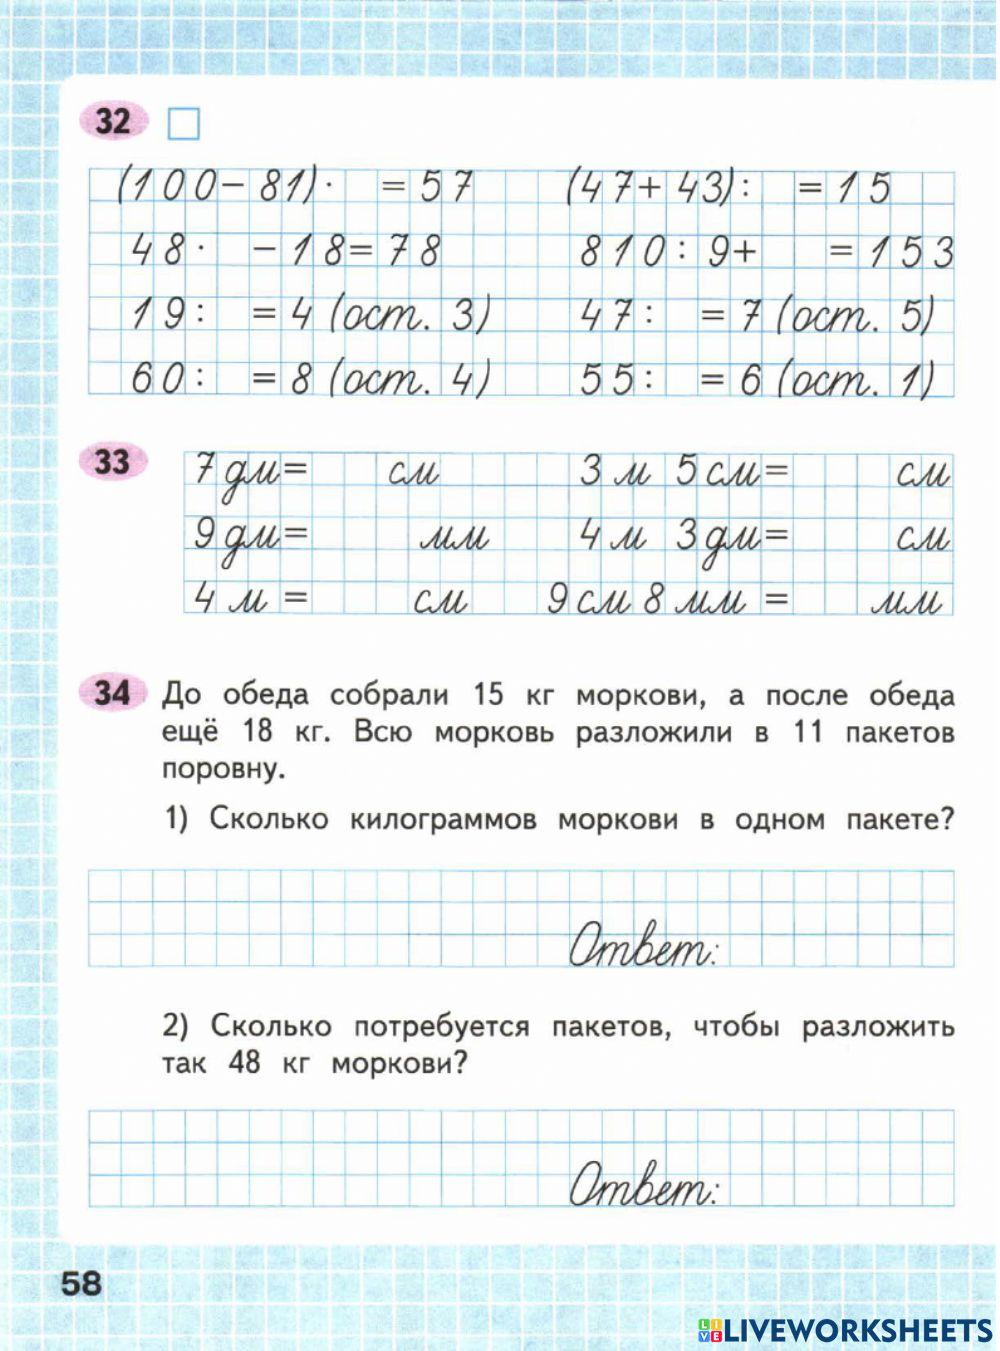 32
(100 - 81) · = 57 (47 + 43) : = 15
48 · - 18 = 78 810 : 9 + = 153
19 : = 4 (ост. 3) 47 : = 7 (ост. 5)
60 : = 8 (ост. 4) 55 : = 6 (ост. 1)
33
7 дм = см 3 м 5 см = см
9 дм = мм 4 м 3 дм = см
4 м = см 9 см 8 мм = мм
34 До обеда собрали 15 кг моркови, а после обеда
ещё 18 кг. Всю морковь разложили в 11 пакетов
поровну.
1) Сколько килограммов моркови в одном пакете?
Ответ:
2) Сколько потребуется пакетов, чтобы разложить
так 48 кг моркови?
Ответ:
58
LIVE LIVEWORKSHEETS